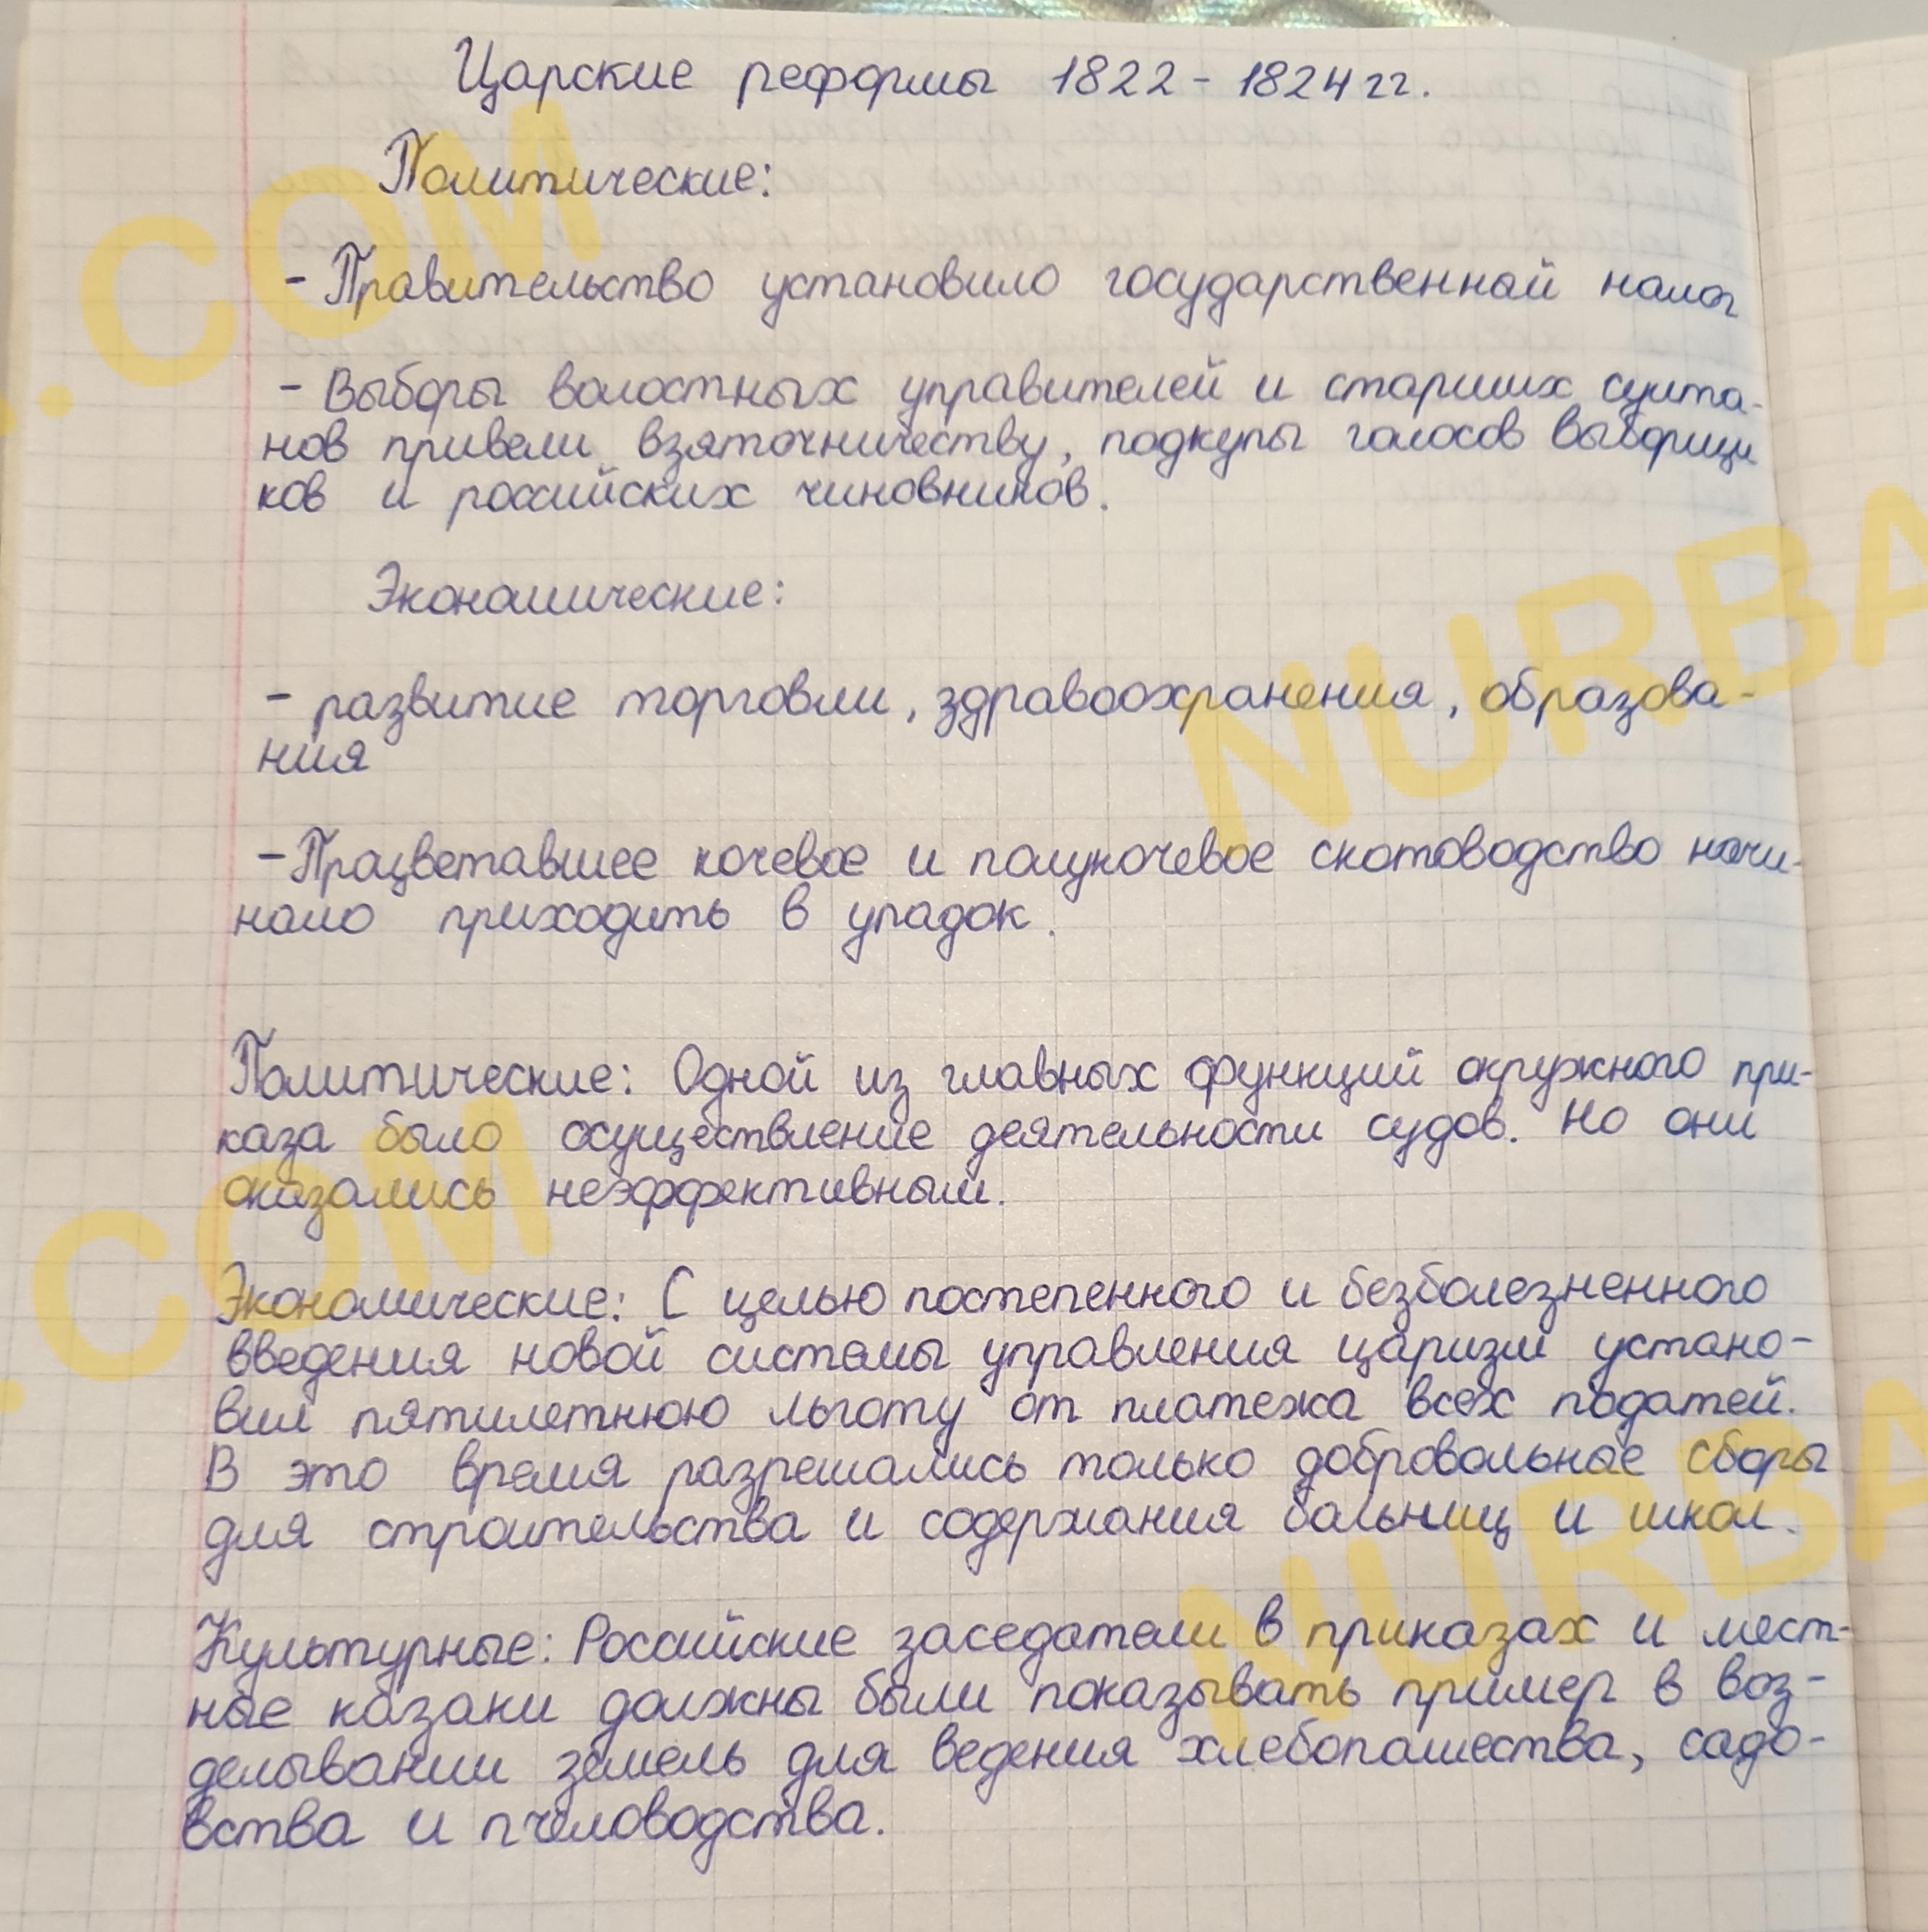 Царские реформы 1822 - 1824 гг.
Политические:
- Правительство установило государственный налог
- Выборы волостных управителей и старших султа-
нов привели взяточничеству, подкупы голосов выборщи
ков и российских чиновников.
Экономические:
- развитие торговли, здравоохранения, образова-
ния
- Процветавшее кочевое и полукочевое скотоводство начи-
нало приходить в упадок.
Политические: Одной из главных функций окружного при-
каза было осуществление деятельности судов. Но они
оказались неэффективным.
Экономические: С целью постепенного и безболезненного
введения новой системы управления царизм устано-
вил пятилетнюю льготу от платежа всех податей.
В это время разрешались только добровольные сборы
для строительства и содержания больниц и школ.
Культурные: Российские заседатели в приказах и мест-
ные казаки должны были показывать пример в воз-
делывании земель для ведения хлебопашества, садо-
вства и пчеловодства.
.COM
NURBA
.COM
NURBA